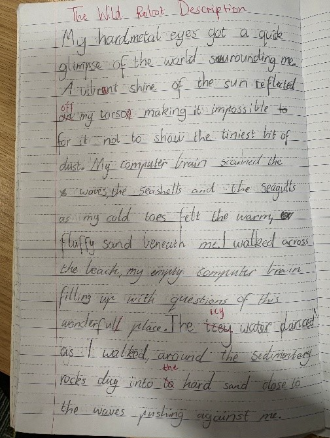 The Wild Robot Description
My hard metal eyes got a quite
glimpse of the world surrounding me.
A vibrant shine of the sun reflected
off my torso making it impossible to
for it not to show the tiniest bit of
dust. My computer brain scanned the
waves, the seashells and the seagulls
as my cold toes felt the warm
fluffy sand beneath me. I walked across
the beach, my empty computer brain
filling up with questions of this
wonderfull place. The icy water danced
as I walked around the sedimentary
rocks dug into the hard sand close to
the waves pushing against me.